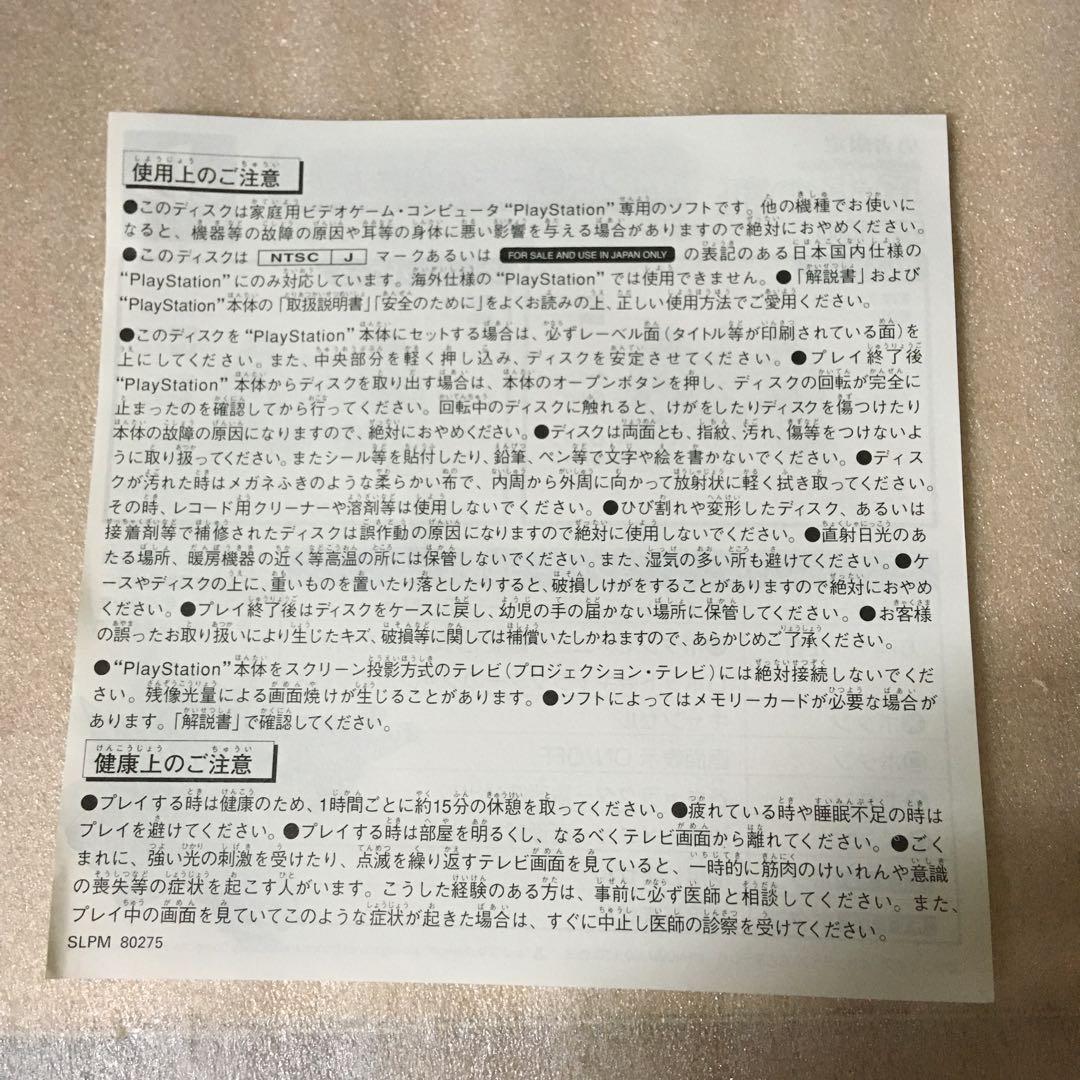 使用上のご注意
●このディスクは家庭用ビデオゲーム・コンピュータ“PlayStation”専用のソフトです。他の機種でお使いに
なると、機器等の故障の原因や耳等の身体に悪い影響を与える場合がありますので絶対におやめください。
●このディスクは NTSC J マークあるいは FOR SALE AND USE IN JAPAN ONLY の表記のある日本国内仕様の
“PlayStation”にのみ対応しています。海外仕様の“PlayStation”では使用できません。●「解説書」および
“PlayStation”本体の「取扱説明書」「安全のために」をよくお読みの上、正しい使用方法でご愛用ください。
●このディスクを“PlayStation”本体にセットする場合は、必ずレーベル面(タイトル等が印刷されている面)を
上にしてください。また、中央部分を軽く押し込み、ディスクを安定させてください。●プレイ終了後
“PlayStation”本体からディスクを取り出す場合は、本体のオープンボタンを押し、ディスクの回転が完全に
止まったのを確認してから行ってください。回転中のディスクに触れると、けがをしたりディスクを傷つけたり
本体の故障の原因になりますので、絶対におやめください。●ディスクは両面とも、指紋、汚れ、傷等をつけないよ
うに取り扱ってください。またシール等を貼付したり、鉛筆、ペン等で文字や絵を書かないでください。●ディス
クが汚れた時はメガネふきのような柔らかい布で、内周から外周に向かって放射状に軽く拭き取ってください。
その時、レコード用クリーナーや溶剤等は使用しないでください。●ひび割れや変形したディスク、あるいは
接着剤等で補修されたディスクは誤作動の原因になりますので絶対に使用しないでください。●直射日光のあ
たる場所、暖房機器の近く等高温の所には保管しないでください。また、湿気の多い所も避けてください。●ケ
ースやディスクの上に、重いものを置いたり落としたりすると、破損しけがをすることがありますので絶対におやめ
ください。●プレイ終了後はディスクをケースに戻し、幼児の手の届かない場所に保管してください。●お客様
の誤ったお取り扱いにより生じたキズ、破損等に関しては補償いたしかねますので、あらかじめご了承ください。
●“PlayStation”本体をスクリーン投影方式のテレビ(プロジェクション・テレビ)には絶対接続しないでくだ
さい。残像光量による画面焼けが生じることがあります。●ソフトによってはメモリーカードが必要な場合が
あります。「解説書」で確認してください。
健康上のご注意
●プレイする時は健康のため、1時間ごとに約15分の休憩を取ってください。●疲れている時や睡眠不足の時は
プレイを避けてください。●プレイする時は部屋を明るくし、なるべくテレビ画面から離れてください。●ごく
まれに、強い光の刺激を受けたり、点滅を繰り返すテレビ画面を見ていると、一時的に筋肉のけいれんや意識
の喪失等の症状を起こす人がいます。こうした経験のある方は、事前に必ず医師と相談してください。また、
プレイ中の画面を見ていてこのような症状が起きた場合は、すぐに中止し医師の診察を受けてください。
SLPM 80275